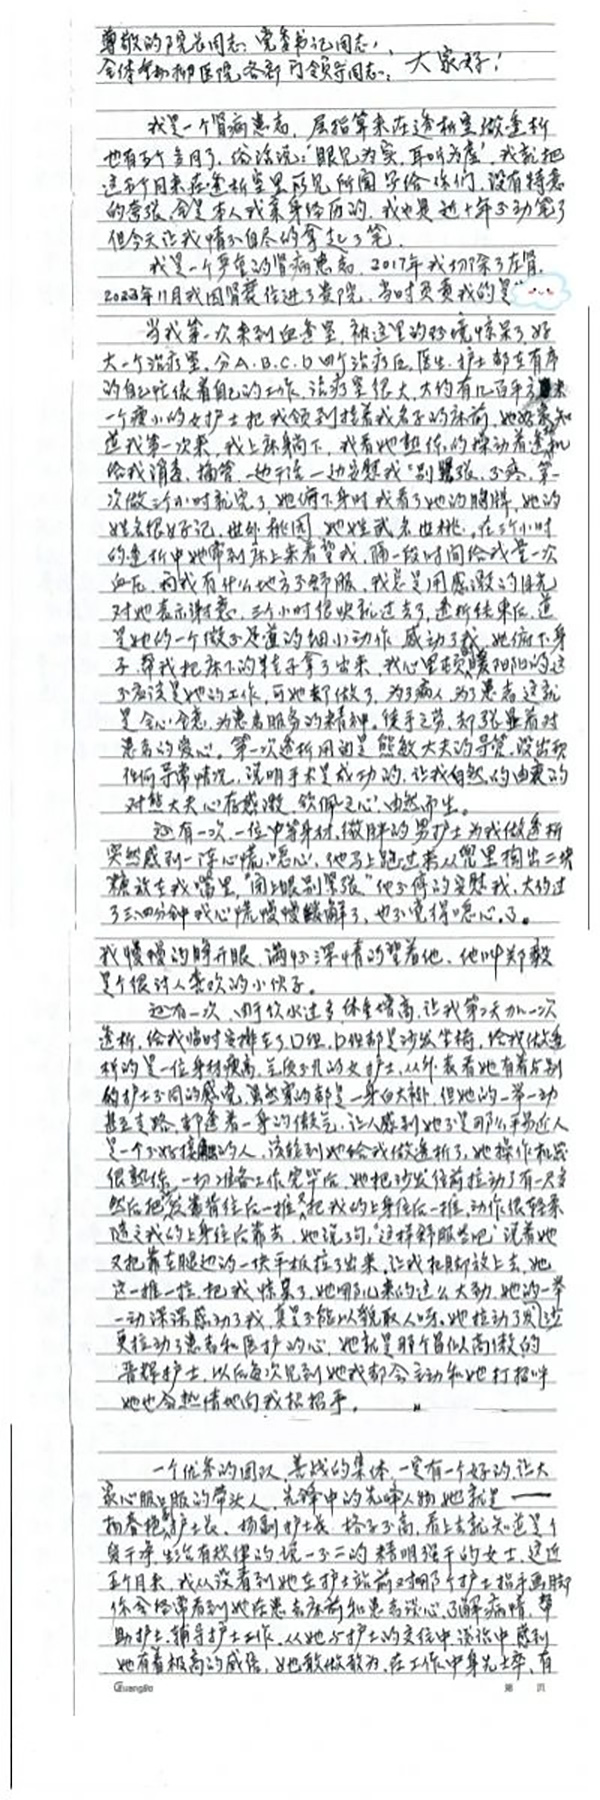 尊敬的院长同志、党委书记同志,
全体 医院各部门领导同志: 大家好!
我是一个肾病患者, 屈指算来在透析室做透析
也有五个多月了, 俗话说:“眼见为实, 耳听为虚”, 我就把
这五个月来在透析室里所见所闻写给你们, 没有特意
的夸张, 全是本人我亲身经历的, 我也是近十年不动笔了
但今天让我情不自尽的拿起了笔。
我是一个严重的肾病患者, 2017年我切除了左肾,
2023年11月我因肾衰住进了贵院, 当时负责我的是
当我第一次来到血透室, 被这里的环境惊呆了, 好
大一个治疗室, 分A.B.C.D四个治疗区, 医生、护士都在有序
的自己忙依着自己的工作, 治疗室很大, 大约有几百平方米
一个瘦小的女护士把我领到挂着我名子的床前, 她好象知
道我第一次来, 我上床躺下, 我看她熟练的操动着透机
给我消毒, 插管, 一边干活一边安慰我“别紧张, 不疼, 第一
次做三个小时就完了, 她俯下身时我看了她的胸牌, 她的
姓名很好记, 世外桃园, 她姓武名世桃, 在三个小时
的透析中她常到床上来看望我, 隔一段时间给我量一次
血压, 问我有什么地方不舒服, 我总是用感激的目光
对她表示谢意, 三个小时很快就过去了, 透析结束后, 道
是她的一个微不足道的细小动作, 感动了我, 她俯下身
子, 帮我把床下的鞋子拿了出来, 我心里顿暖阳阳的这
不应该是她的工作, 可她却做了, 为了病人, 为了患者这就
是全心全意, 为患者服务的精神。徒手之劳, 却张显着对
患者的爱心。第一次透析用的是熊敏大夫的导管, 没出现
任何异常情况, 说明手术是成功的, 让我自然的由衷的
对熊大夫心存感激, 钦佩之心, 由然而生。
还有一次, 一位中等身材, 微胖的男护士为我做透析
突然感到一阵心慌, 噁心, 他马上跑过来从兜里掏出二块
糖放在我嘴里, “闭上眼别紧张”他不停的安慰我, 大约过
了三、四分钟我心慌慢慢缓解了, 也不觉得噁心了。
我慢慢的睁开眼, 满怀深情的望着他, 他叫郑毅
是个很讨人喜欢的小伙子。
还有一次, 由于饮水过多体重增高, 让我第2天加一次
透析, 给我临时安排在了D组, D组都是沙发坐椅, 给我做透
析的是一位身材瘦高, 气质不凡的女护士, 从外表看她有着与别
的护士不同的感觉, 虽然穿的都是一身白大褂, 但她的一举一动
甚至走路, 都透着一身的傲气, 让人感到她不是那么平易近人
是一个不好接触的人, 该轮到她给我做透析了, 她操作机器
很熟练, 一切准备工作完毕后, 她把沙发往前拉动了有一尺多
然后把 靠背往后一推, 把我的上身往后一推, 动作很轻柔
随之我的上身往后靠去, 她说了句, “这样舒服些吧”说着她
又把靠在腿边的一块平板拉了出来, 让我把脚放上去, 她
这一推一拉, 把我惊呆了, 她哪儿来的这么大劲, 她的一举
一动深深感动了我, 真是不能以貌取人呀。她拉动了
更拉动了患者和医护的心, 她就是那个看似高傲的
晋辉护士, 以后每次见到她我都会主动和她打招呼
她也会热情地向我招招手。
一个优秀的团队, 善战的集体, 一定有一个好的, 让大
家心服口服的带头人, 先锋中的先峰人物她就是——
杨春艳护士长, 杨副护士长, 格子不高, 看上去就知道是个
负干净, 生活有规律的, 说一不二的精明强干的女士, 这近
五个月来, 我从没看到她在护士站前对哪个护士指手画脚
你会经常看到她在患者床前和患者谈心, 了解病情, 帮
助护士, 辅导护士工作, 从她与护士的交往中, 谈论中感到
她有着极高的威信, 她敢做敢为, 在工作中身先士卒, 有
GuangBo 第 页